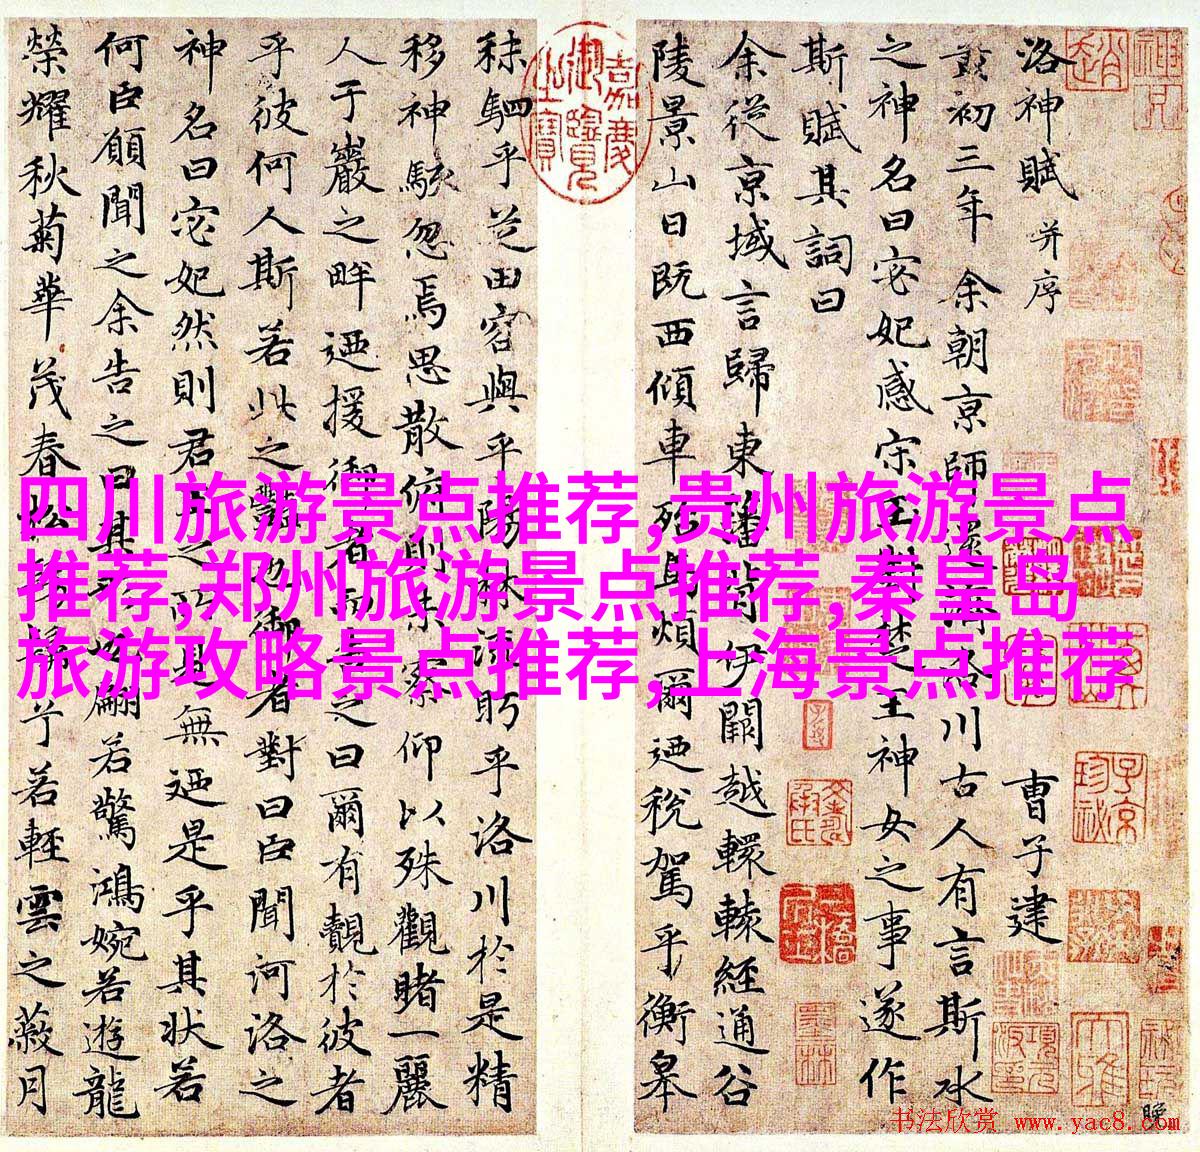 洛神賦 并序
曹子建
黃初三年余朝京師還濟洛川古人有言斯水
之神名曰宓妃感宋玉對楚王神女之事遂作
斯賦其詞曰
余從京域言歸東藩背伊闕越轘轅經通谷
陵景山日既西傾車殆馬煩爾迺稅駕乎蘅皋
秣駟乎芝田容與乎陽林流眄乎洛川於是精
移神駭忽焉思散俯則未察仰以殊觀睹一麗
人于巖之畔迺援御者而告之曰爾有覿於彼者
乎彼何人斯若此之豔也御者對曰臣聞河洛之
神名曰宓妃然則君王之所見無迺是乎其狀若
何臣願聞之余告之曰其形也翩若驚鴻婉若遊龍
榮耀秋菊華茂春松髣髴兮若輕雲之蔽月
嘉慶御覽之寶
四川旅游景点推荐,贵州旅游景点
推荐,郑州旅游景点推荐,秦皇岛
旅游攻略景点推荐,上海景点推荐
书法欣赏 www.yac8.com